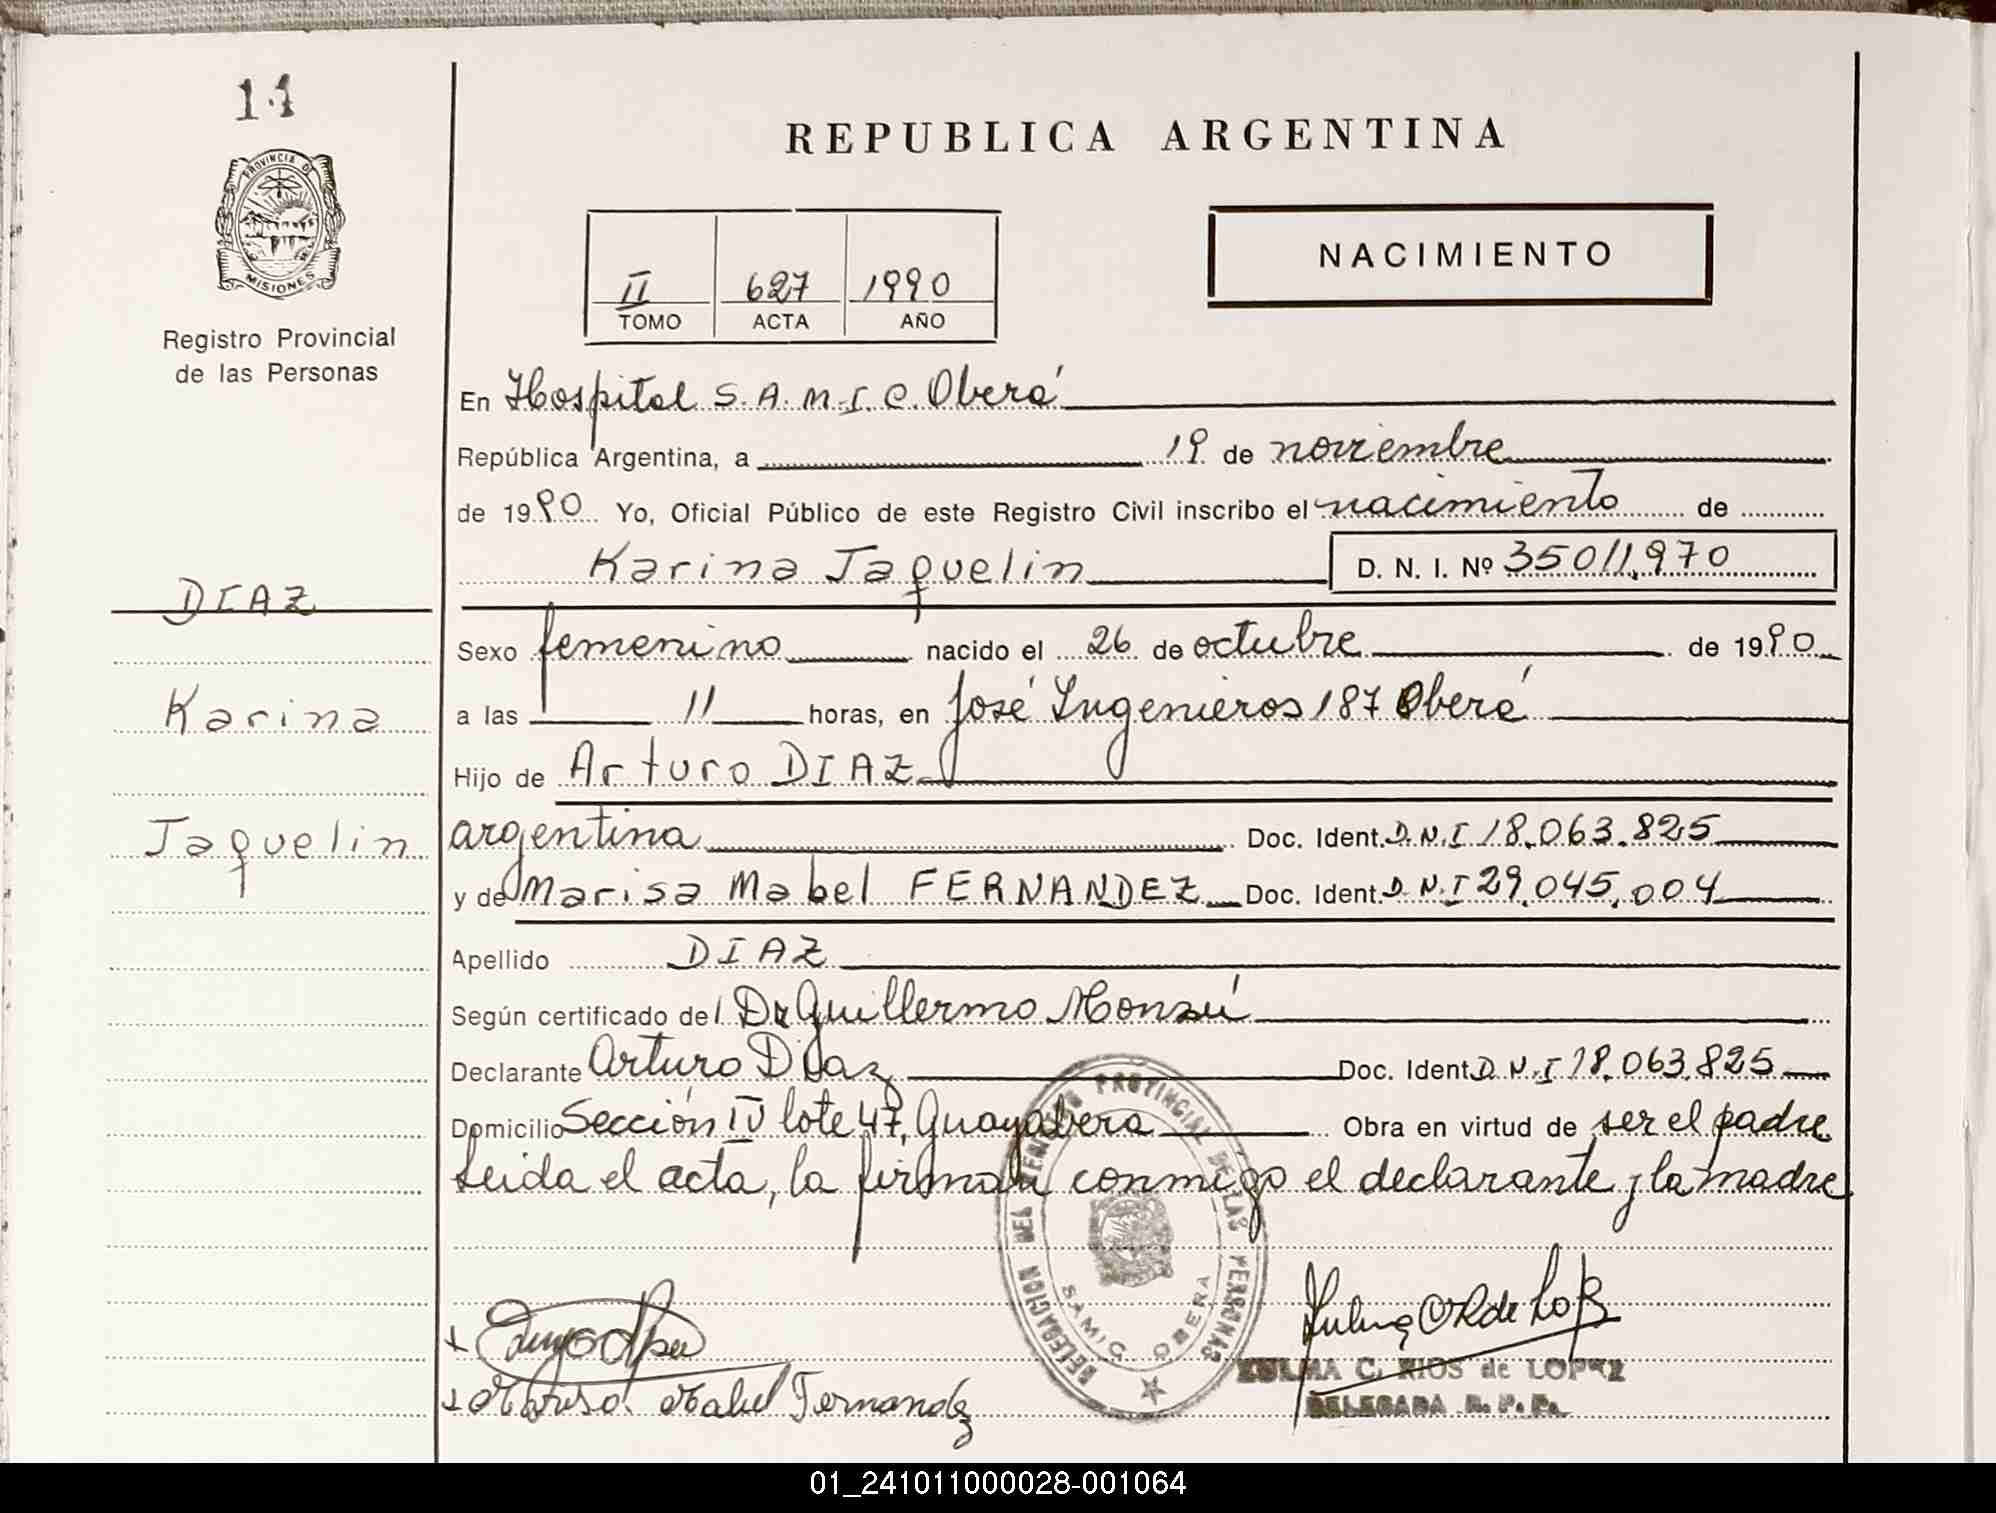 14
REPUBLICA ARGENTINA
PROVINCIA DE
MISIONES
NACIMIENTO
II 627 1990
TOMO ACTA AÑO
Registro Provincial
de las Personas
En Hospital S.A.M.I.C. Oberá
República Argentina, a 19 de noviembre
de 1990 Yo, Oficial Público de este Registro Civil inscribo el nacimiento de
Karina Jaquelin D. N. I. Nº 35011.970
DIAZ
Karina
Jaquelin
Sexo femenino nacido el 26 de octubre de 1990
a las 11 horas, en José Ingenieros 187 Oberá
Hijo de Arturo DIAZ
argentina Doc. Ident. D.N.I 18.063.825
y de Marisa Mabel FERNANDEZ Doc. Ident. D.N.I 29.045.004
Apellido DIAZ
Según certificado del Dr Guillermo Monzú
Declarante Arturo Diaz Doc. Ident D.N.I 18.063.825
Domicilio Sección IV lote 47, Guayabera Obra en virtud de ser el padre
Leida el acta, la firman conmigo el declarante y la madre
DELEGACION DEL REGISTRO PROVINCIAL DE LAS PERSONAS
SAMIC OBERA
Marisa Mabel Fernandez
ZULMA C. RIOS de LOPEZ
DELEGADA R. P. P.
01_241011000028-001064